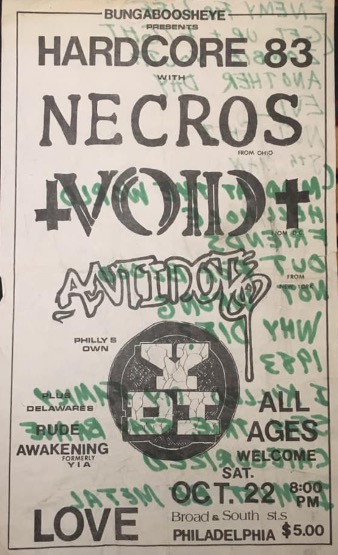 BUNGABOOSHEYE
PRESENTS
HARDCORE 83
WITH
NECROS
FROM OHIO
VOID
FROM D.C.
ANTIDOTE
FROM
NEW YORK
PHILLY'S
OWN
YDI
PLUS
DELAWARES
RUDE
AWAKENING
FORMERLY
YIA
ALL
AGES
WELCOME
SAT.
OCT. 22 8:00
PM
LOVE
Broad & South sts
PHILADELPHIA $5.00
ENEMY
GET UP &
ANOTHER DAY
FRIENDS
OUT
NOT
WHY DIE
1983
METAL